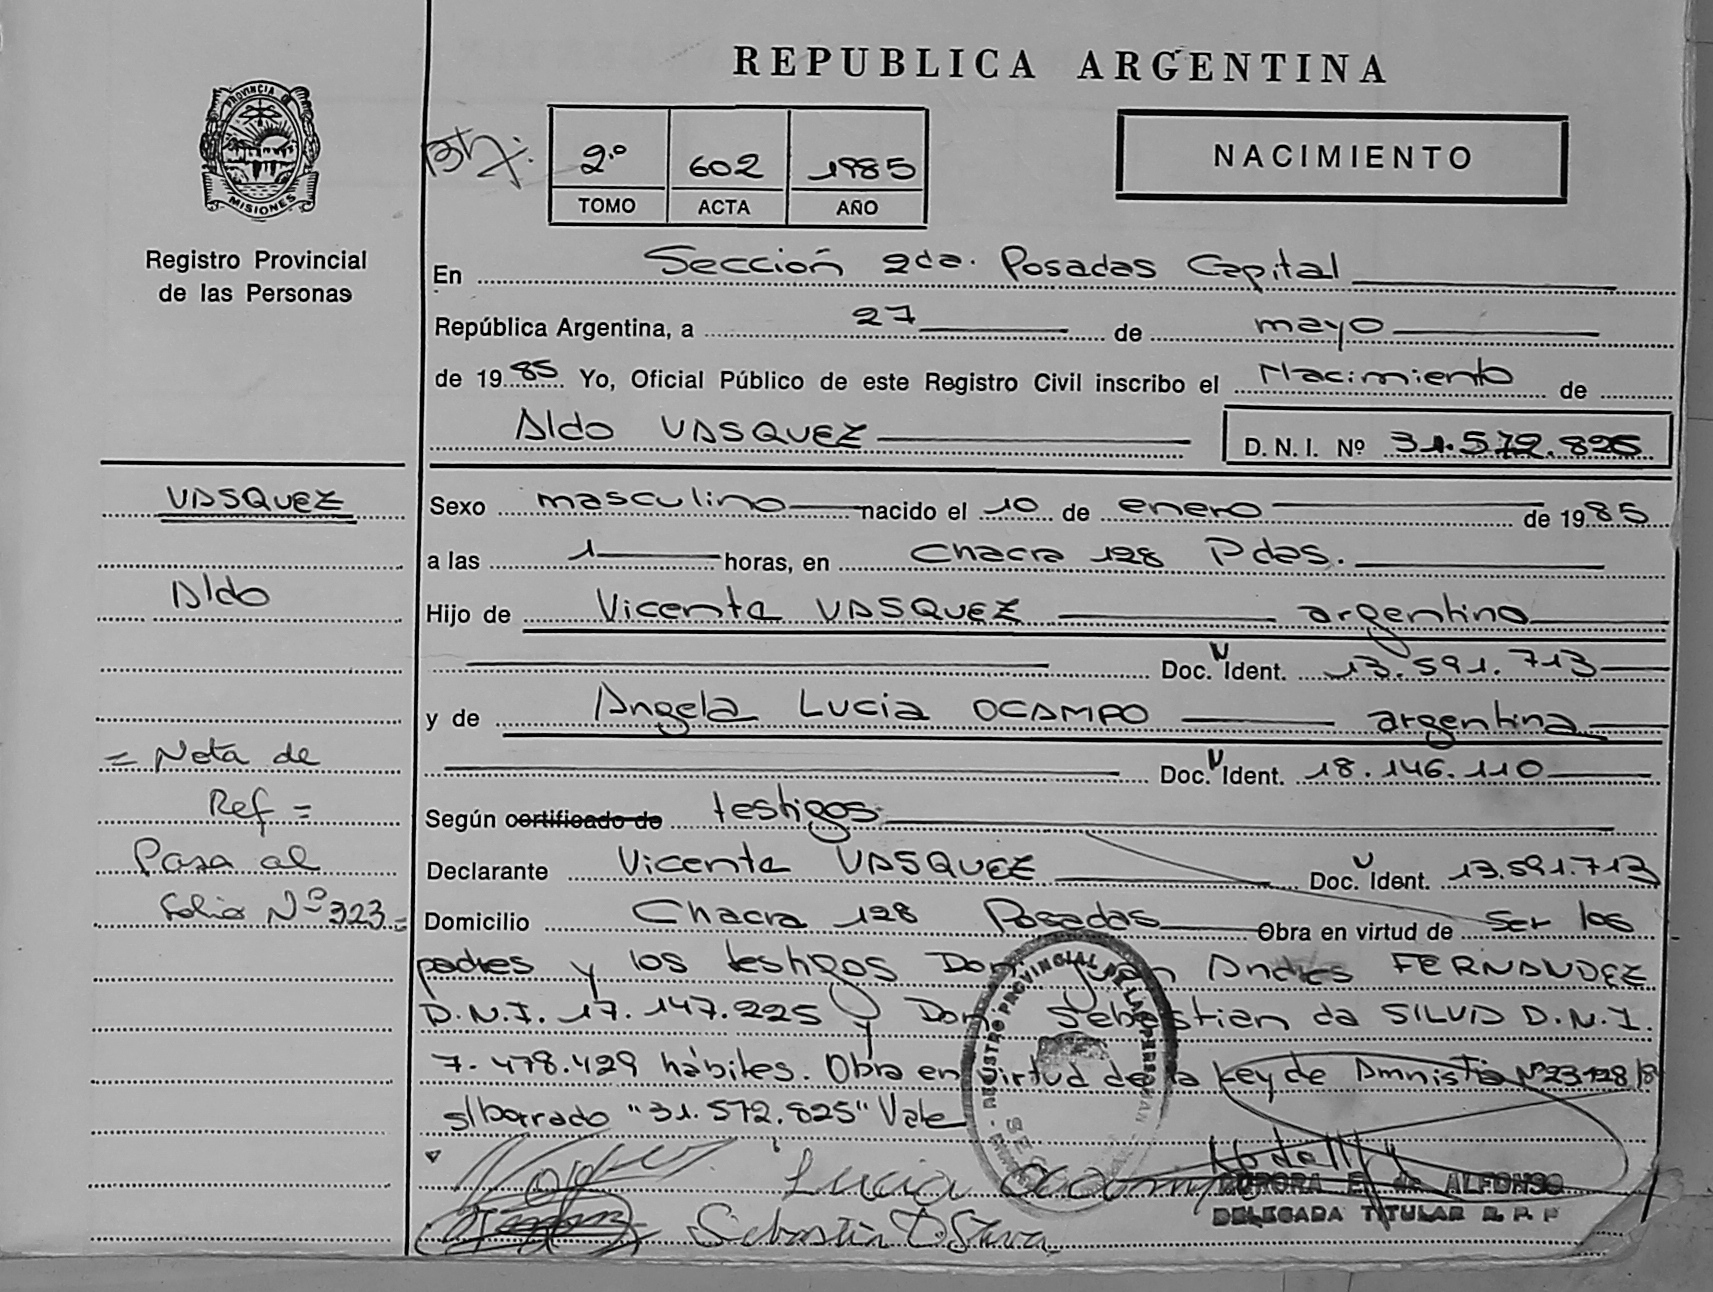 REPUBLICA ARGENTINA
PROVINCIA DE
MISIONES
Registro Provincial
de las Personas
2º 602 1985
TOMO ACTA AÑO
NACIMIENTO
En Sección 2da. Posadas Capital
República Argentina, a 27 de mayo
de 1985 Yo, Oficial Público de este Registro Civil inscribo el Nacimiento de
Aldo VASQUEZ D. N. I. Nº 31.572.825
VASQUEZ
Aldo
= Nota de
Ref =
Pasa al
folio Nº 323=
Sexo masculino nacido el 10 de enero de 1985
a las 1 horas, en Chacra 128 Pdas.
Hijo de Vicente VASQUEZ argentino
Doc. Ident. 13.591.713
y de Angela Lucia OCAMPO argentina
Doc. Ident. 18.146.110
Según certificado de testigos
Declarante Vicente VASQUEZ Doc. Ident. 13.591.713
Domicilio Chacra 128 Posadas Obra en virtud de ser los
padres y los testigos Don Juan Andres FERNANDEZ
D.N.I. 17.147.225 y Don Sebastian da SILVA D.N.I.
7.478.429 hábiles. Obra en virtud de la Ley de Amnistia Nº 23128/8
s/borrado "31.572.825" Vale
REGISTRO PROVINCIAL DE LAS PERSONAS
Lucia Ocampo
AURORA E. de ALFONSO
DELEGADA TITULAR R. P. P
Sebastian D Silva